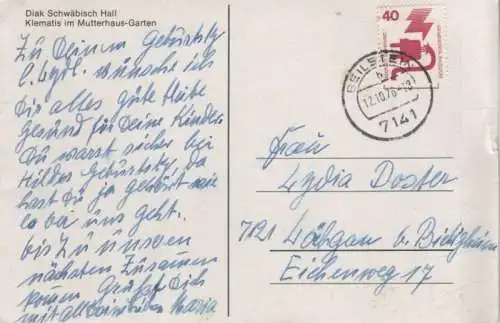 Diak Schwäbisch Hall
Klematis im Mutterhaus-Garten
Zu Deinem Geburtstg
l. Lydl. wünsche ich
Dir alles gute bleibe
gesund für Deine Kinder
Du warst sicher bei
Hildes Geburtstg da
hast Du ja gehört wie
es bei uns geht.
bis zu unsrem
nächsten Zusamen
Grüßt Dich
mit all Maria
40
DEUTSCHE BUNDESPOST
BEILSTEIN
b
12.10.76
7141
Frau
Lydia Doster
7121 Löchgau b. Bietigheim
Eichenweg 17